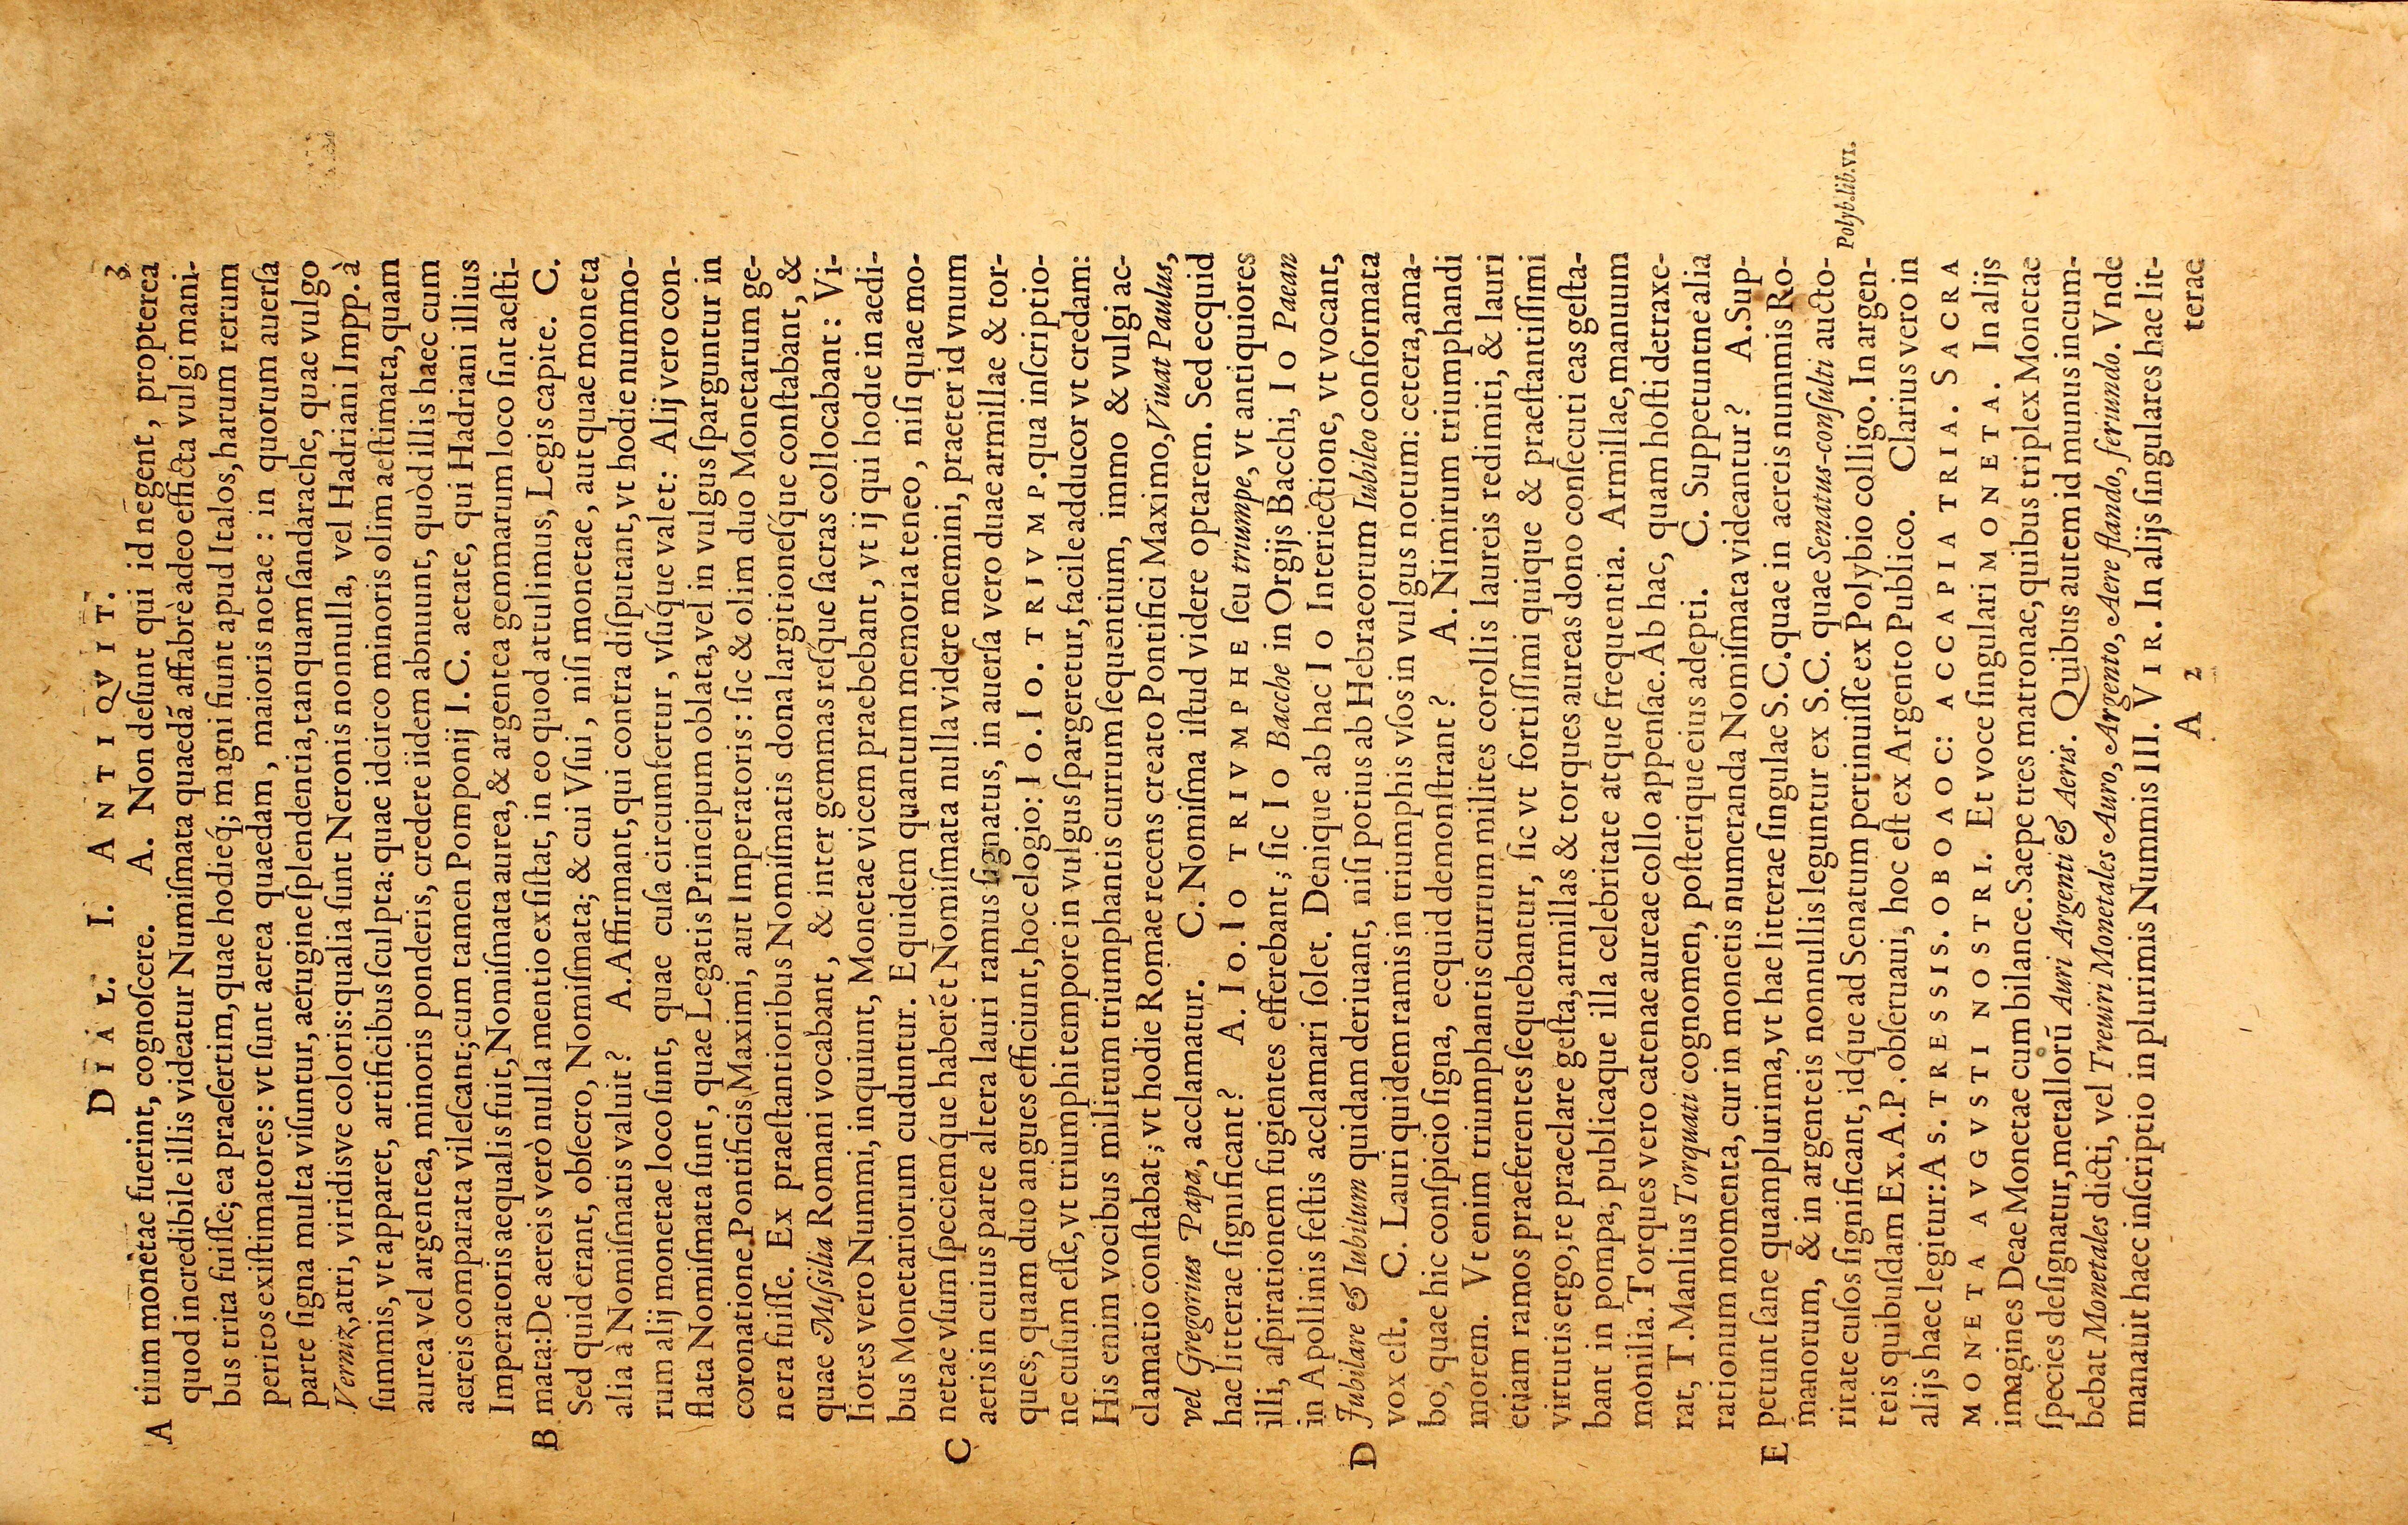 DIAL. I. ANTIQVIT. 3
A tium monetae fuerint, cognoſcere. A. Non deſunt qui id negent, propterea
quod incredibile illis videatur Numiſmata quaedã affabrè adeo efficta vulgi mani-
bus trita fuiſſe; ea praeſertim, quae hodiéq; magni fiunt apud Italos, harum rerum
peritos exiſtimatores: vt ſunt aerea quaedam, maioris notae: in quorum auerſa
parte ſigna multa viſuntur, aerugine ſplendentia, tanquam ſandarache, quae vulgo
Verniz, atri, viridisve coloris: qualia ſunt Neronis nonnulla, vel Hadriani Impp. à
ſummis, vt apparet, artificibus ſculpta: quae idcirco minoris olim aeſtimata, quam
aurea vel argentea, minoris ponderis, credere iidem abnuunt, quòd illis haec cum
aereis comparata vileſcant; cum tamen Pomponij I.C. aetate, qui Hadriani illius
Imperatoris aequalis fuit, Nomiſmata aurea, & argentea gemmarum loco ſint aeſti-
B mata: De aereis verò nulla mentio exſiſtat, in eo quod attulimus, Legis capite. C.
Sed quid erant, obſecro, Nomiſmata; & cui Vſui, niſi monetae, aut quae moneta
alia à Nomiſmatis valuit? A. Affirmant, qui contra diſputant, vt hodie nummo-
rum alij monetae loco ſunt, quae cuſa circumfertur, vſúque valet: Alij vero con-
flata Nomiſmata ſunt, quae Legatis Principum oblata, vel in vulgus ſparguntur in
coronatione Pontificis Maximi, aut Imperatoris: ſic & olim duo Monetarum ge-
nera fuiſſe. Ex praeſtantioribus Nomiſmatis dona largitioneſque conſtabant, &
quae Miſsilia Romani vocabant, & inter gemmas reſque ſacras collocabant: Vi-
liores vero Nummi, inquiunt, Monetae vicem praebebant, vt ij qui hodie in aedi-
bus Monetariorum cuduntur. Equidem quantum memoria teneo, niſi quae mo-
C netae vſum ſpeciemque haberēt Nomiſmata nulla videre memini, praeter id vnum
aeris in cuius parte altera lauri ramus ſignatus, in auerſa vero duae armillae & tor-
ques; quam duo angues efficiunt, hoc elogio: IO. IO. TRIVMP. qua inſcriptio-
ne cuſum eſſe, vt triumphi tempore in vulgus ſpargeretur, facile adducor vt credam:
His enim vocibus militum triumphantis currum ſequentium, immo & vulgi ac-
clamatio conſtabat; vt hodie Romae recens creato Pontifici Maximo, Viuat Paulus,
vel Gregorius Papa, acclamatur. C. Nomiſma iſtud videre optarem. Sed ecquid
hae litterae ſignificant? A. IO. IO TRIVMPHE ſeu triumpe, vt antiquiores
illi, aſpirationem fugientes efferebant; ſic IO Bacche in Orgijs Bacchi, IO Paean
in Apollinis feſtis acclamari ſolet. Denique ab hac IO Interiectione, vt vocant,
D Jubilare & Iubitum quidam deriuant, niſi potius ab Hebraeorum Iubileo conformata
vox eſt. C. Lauri quidem ramis in triumphis vſos in vulgus notum: cetera, ama-
bo, quae hic conſpicio ſigna, ecquid demonſtrant? A. Nimirum triumphandi
morem. Vt enim triumphantis currum milites corollis laureis redimiti, & lauri
etiam ramos praeferentes ſequebantur, ſic vt fortiſſimi quique & praeſtantiſſimi
virtutis ergo, re praeclare geſta, armillas & torques aureas dono conſecuti eas geſta-
bant in pompa; publicaque illa celebritate atque frequentia. Armillae, manuum
monilia. Torques vero catenae aureae collo appenſae. Ab hac, quam hoſti detraxe-
rat, T. Manlius Torquati cognomen, poſterique eius adepti. C. Suppetuntne alia
rationum momenta, cur in monetis numeranda Nomiſmata videantur? A. Sup-
E petunt ſane quamplurima, vt hae litterae ſingulae S.C. quae in aereis nummis Ro-
manorum, & in argenteis nonnullis leguntur ex S.C. quae Senatus-conſulti aucto-
ritate cuſos ſignificant, idque ad Senatum pertinuiſſe ex Polybio colligo. In argen-
Polyb. lib. VI.
teis quibuſdam Ex. A.P. obſeruaui, hoc eſt ex Argento Publico. Clarius vero in
alijs haec legitur: AS. TRESSIS. OBOΛOC: ACCAPIA TRIA. SACRA
MONETA AVGVSTI NOSTRI. Et voce ſingulari MONETA. In alijs
imagines Deae Monetae cum bilance. Saepe tres matronae, quibus triplex Monetae
ſpecies deſignatur, metallorũ Auri Argenti & Aeris. Quibus autem id munus incum-
bebat Monetales dicti, vel Treuiri Monetales Auro, Argento, Aere flando, feriundo. Vnde
manauit haec inſcriptio in plurimis Nummis III. VIR. In alijs ſingulares hae lit-
A 2 terae